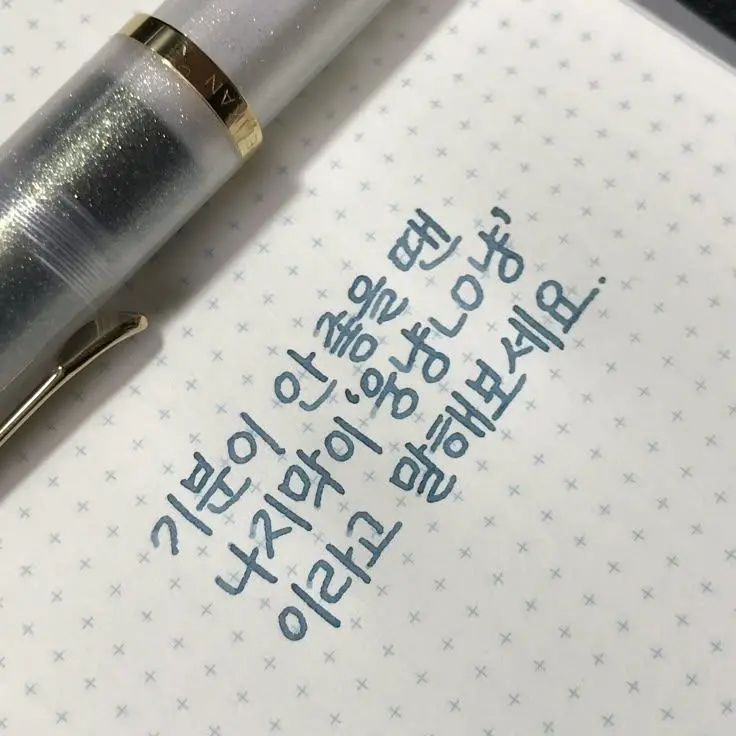 기분이 안 좋을 땐
나지막이 '웅냥ㄴㅇ냥'
이라고 말해보세요.